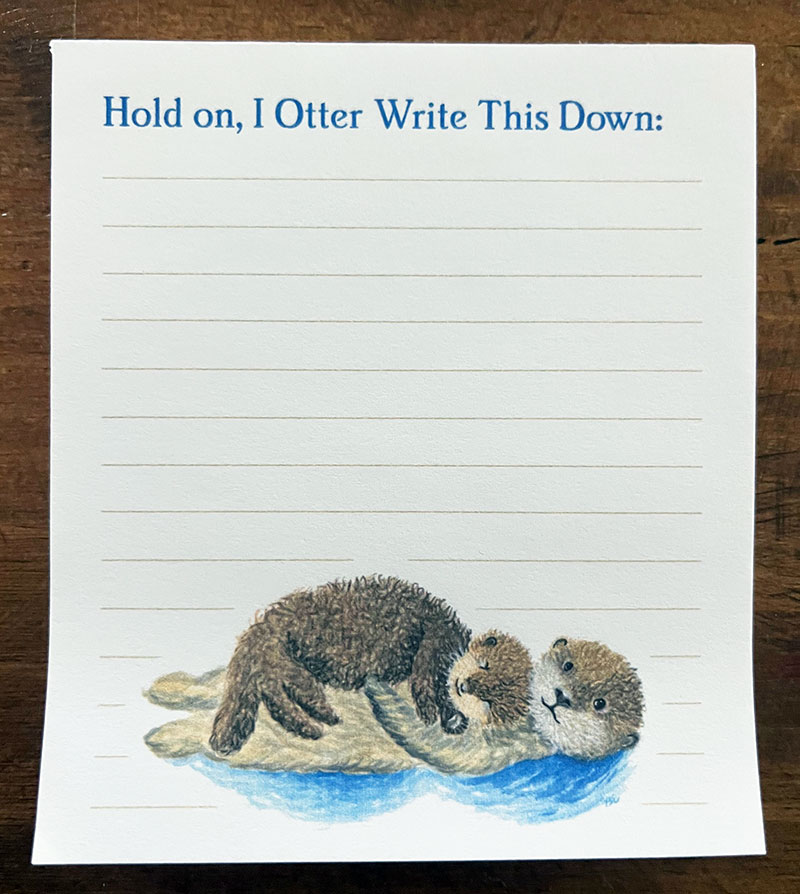 Hold on, I Otter Write This Down: